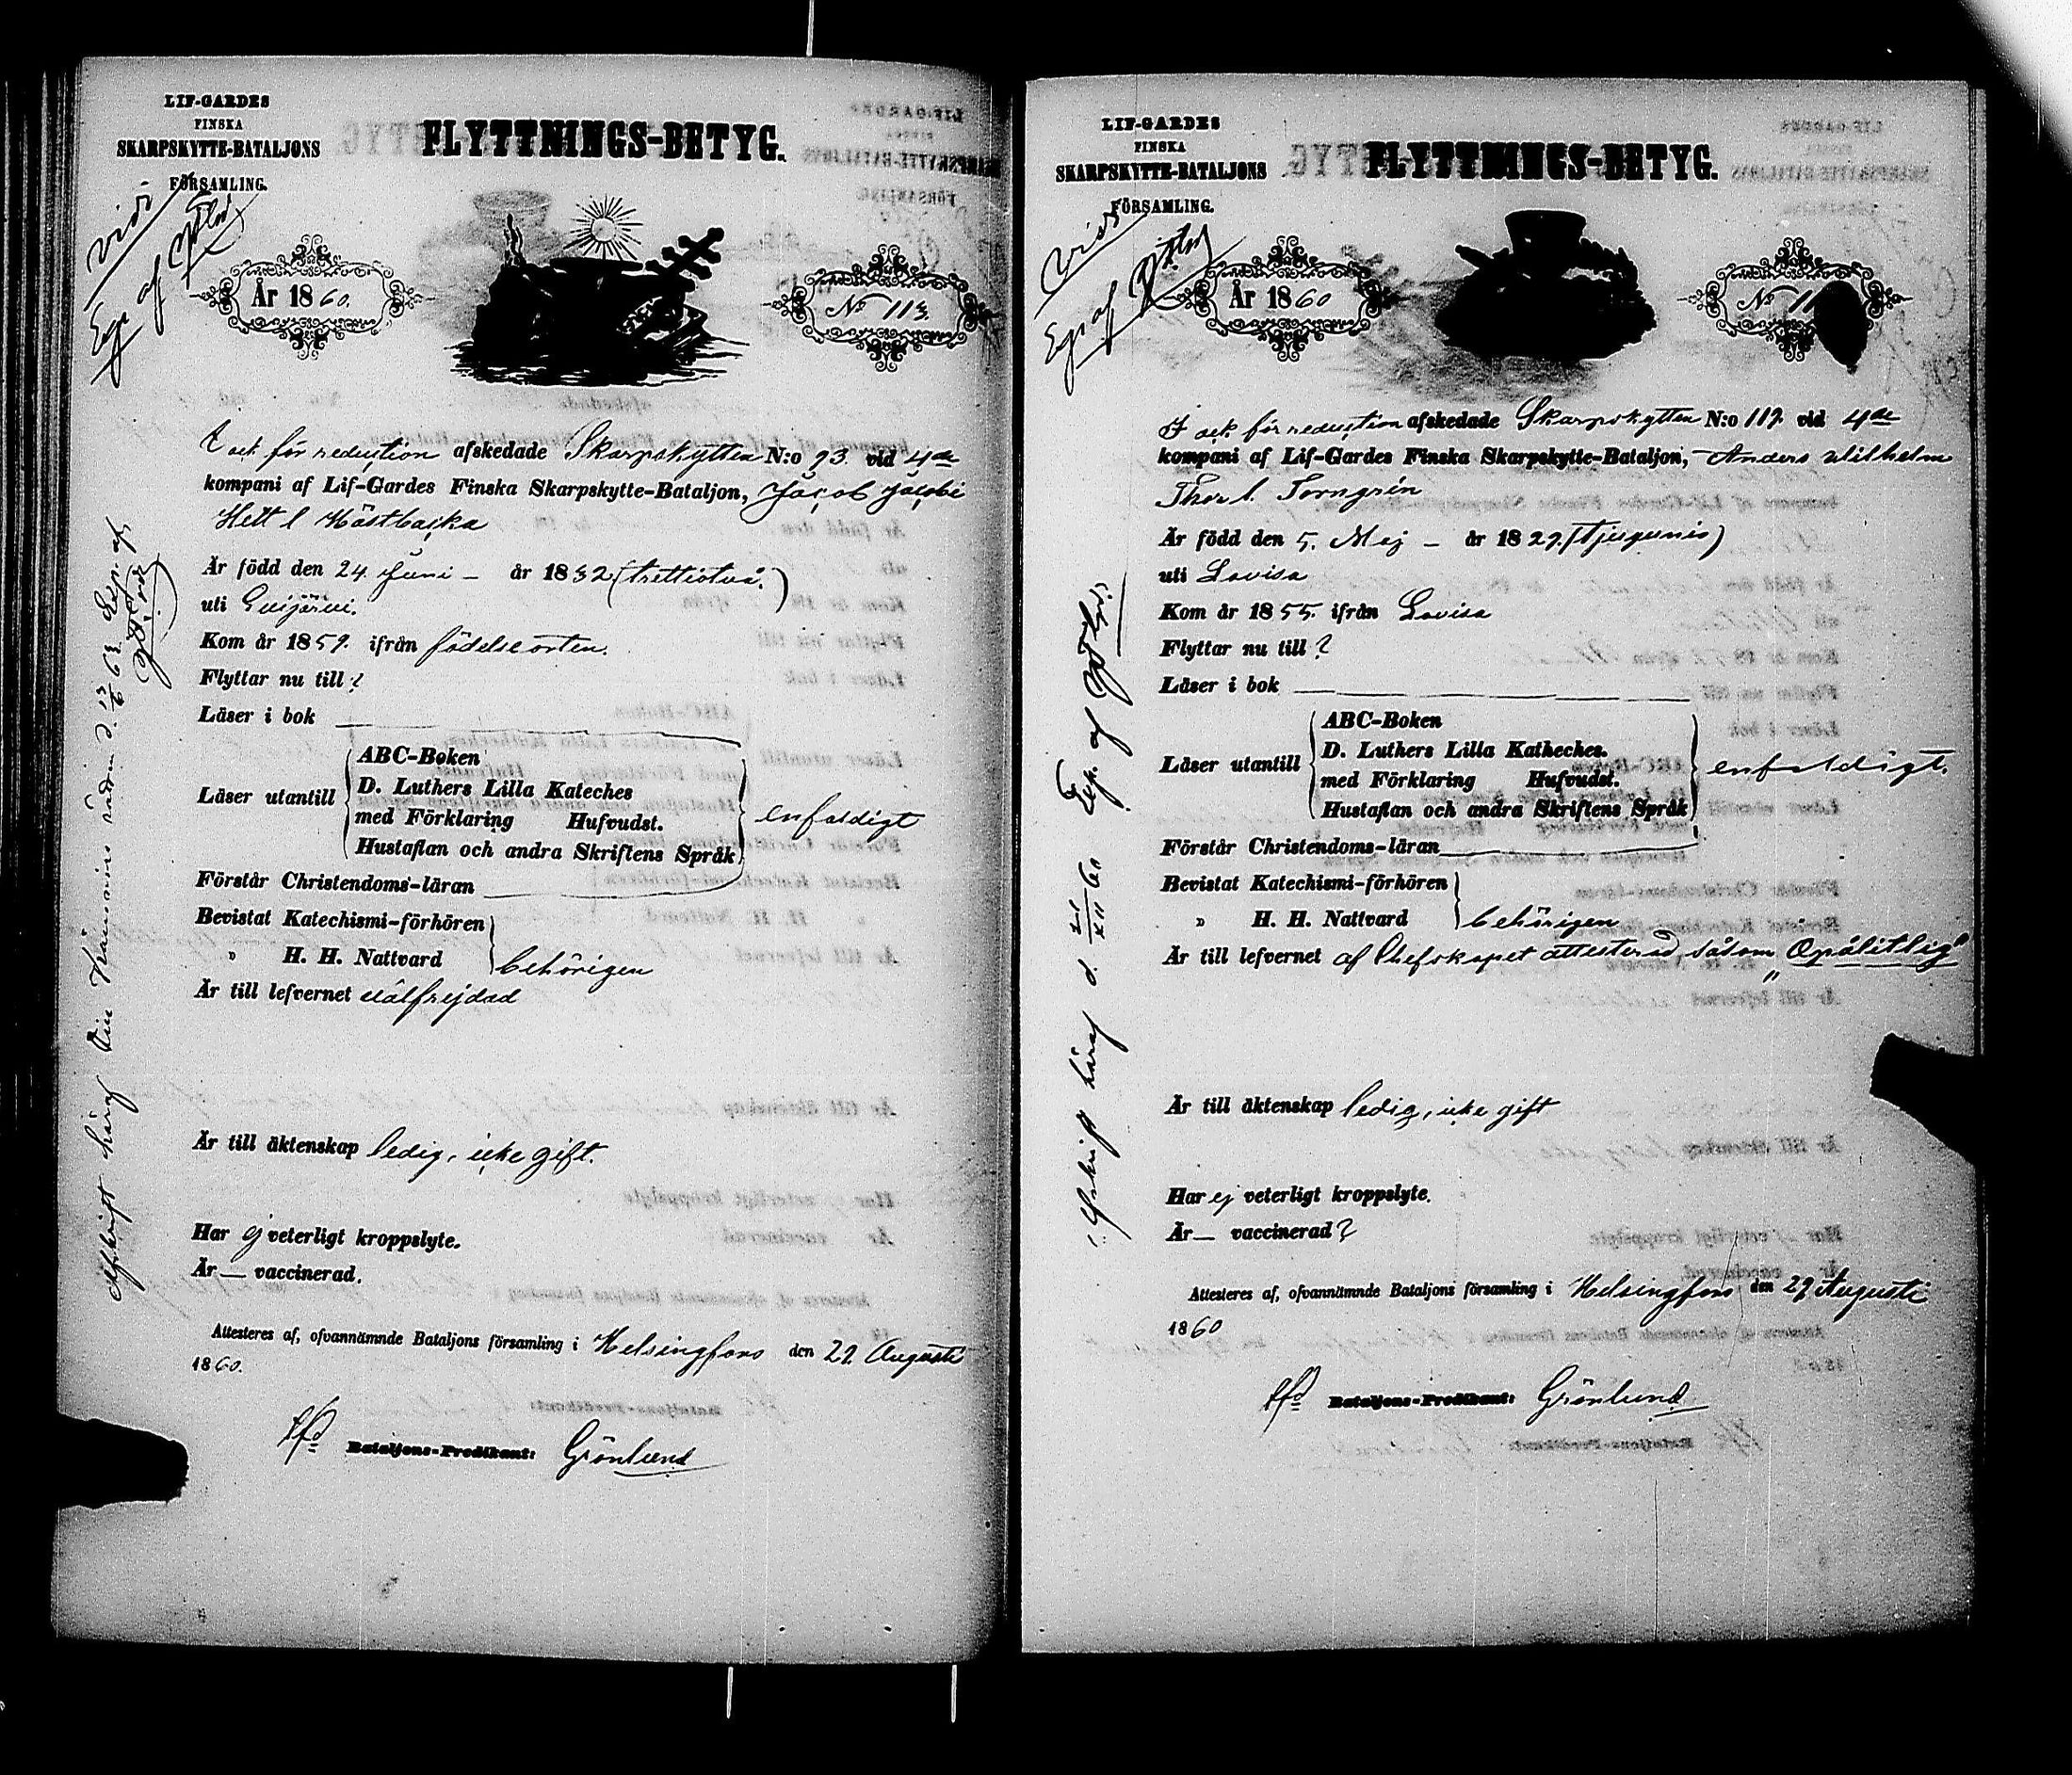 LIF-GARDES
FINSKA
SKARPSKYTTE-BATALJONS
FÖRSAMLING.
FLYTTNINGS-BETYG.
Vidi
År 1860.
No 113.
I ock för reduction afskedade Skarpskytten N:o 93. vid 4de
kompani af Lif-Gardes Finska Skarpskytte-Bataljon, Jacob Jacobi
Hett l Hästbacka
Är född den 24. Juni – år 1832 (trettiotvå.)
uti Evijärvi.
Kom år 1859. ifrån födelseorten.
Flyttar nu till ?
Läser i bok
Läser utantill
ABC-Boken
D. Luthers Lilla Kateches
med Förklaring Hufvudst.
Hustaflan och andra Skriftens Språk
enfaldigt
Förstår Christendoms-läran
Bevistat Katechismi-förhören
" H. H. Nattvard
behörigen
Är till lefvernet välfrejdad
Är till äktenskap ledig, icke gift.
Har ej veterligt kroppslyte.
Är — vaccinerad.
Attesteres af, ofvannämnde Bataljons församling i Helsingfors den 29. Augusti
1860.
Bataljons-Predikant: Grönlund
Afskrift häraf
LIF-GARDES
FINSKA
SKARPSKYTTE-BATALJONS
FÖRSAMLING.
FLYTTNINGS-BETYG.
Vidi
År 1860
No 11
I ock för reduction afskedade Skarpskytten N:o 119. vid 4de
kompani af Lif-Gardes Finska Skarpskytte-Bataljon, Anders Wilhelm
Thor l. Torngrén
Är född den 5. Maj – år 1829. (tjugunio)
uti Lovisa
Kom år 1855. ifrån Lovisa
Flyttar nu till ?
Läser i bok
Läser utantill
ABC-Boken
D. Luthers Lilla Katheches.
med Förklaring Hufvudst.
Hustaflan och andra Skriftens Språk
enfaldigt.
Förstår Christendoms-läran
Bevistat Katechismi-förhören
" H. H. Nattvard
behörigen
Är till lefvernet af Chefskapet attesterad såsom "Opålitlig"
Är till äktenskap ledig, icke gift
Har ej veterligt kroppslyte.
Är — vaccinerad ?
Attesteres af, ofvannämnde Bataljons församling i Helsingfors den 29 Augusti
1860
Bataljons-Predikant: Grönlund
Afskrift häraf